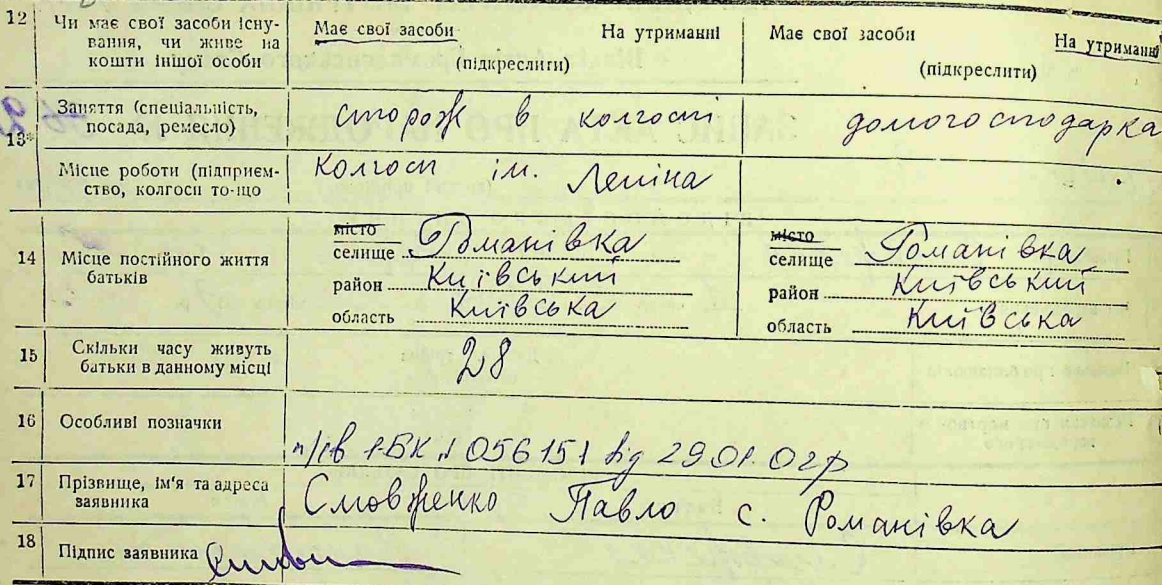 12 Чи має свої засоби існу-
вання, чи живе на
кошти іншої особи
Має свої засоби На утриманні
(підкреслити)
Має свої засоби На утриманні
(підкреслити)
13* Заняття (спеціальність,
посада, ремесло)
сторож в колгоспі
домогосподарка
Місце роботи (підприєм-
ство, колгосп то-що
Колгосп ім. Леніна
14 Місце постійного життя
батьків
місто
селище Романівка
район Київський
область Київська
місто
селище Романівка
район Київський
область Київська
15 Скільки часу живуть
батьки в данному місці
28
16 Особливі позначки
п/св 1-БК 056151 від 29.01.02р
17 Прізвище, ім'я та адреса
заявника
Павло с. Романівка
18 Підпис заявника